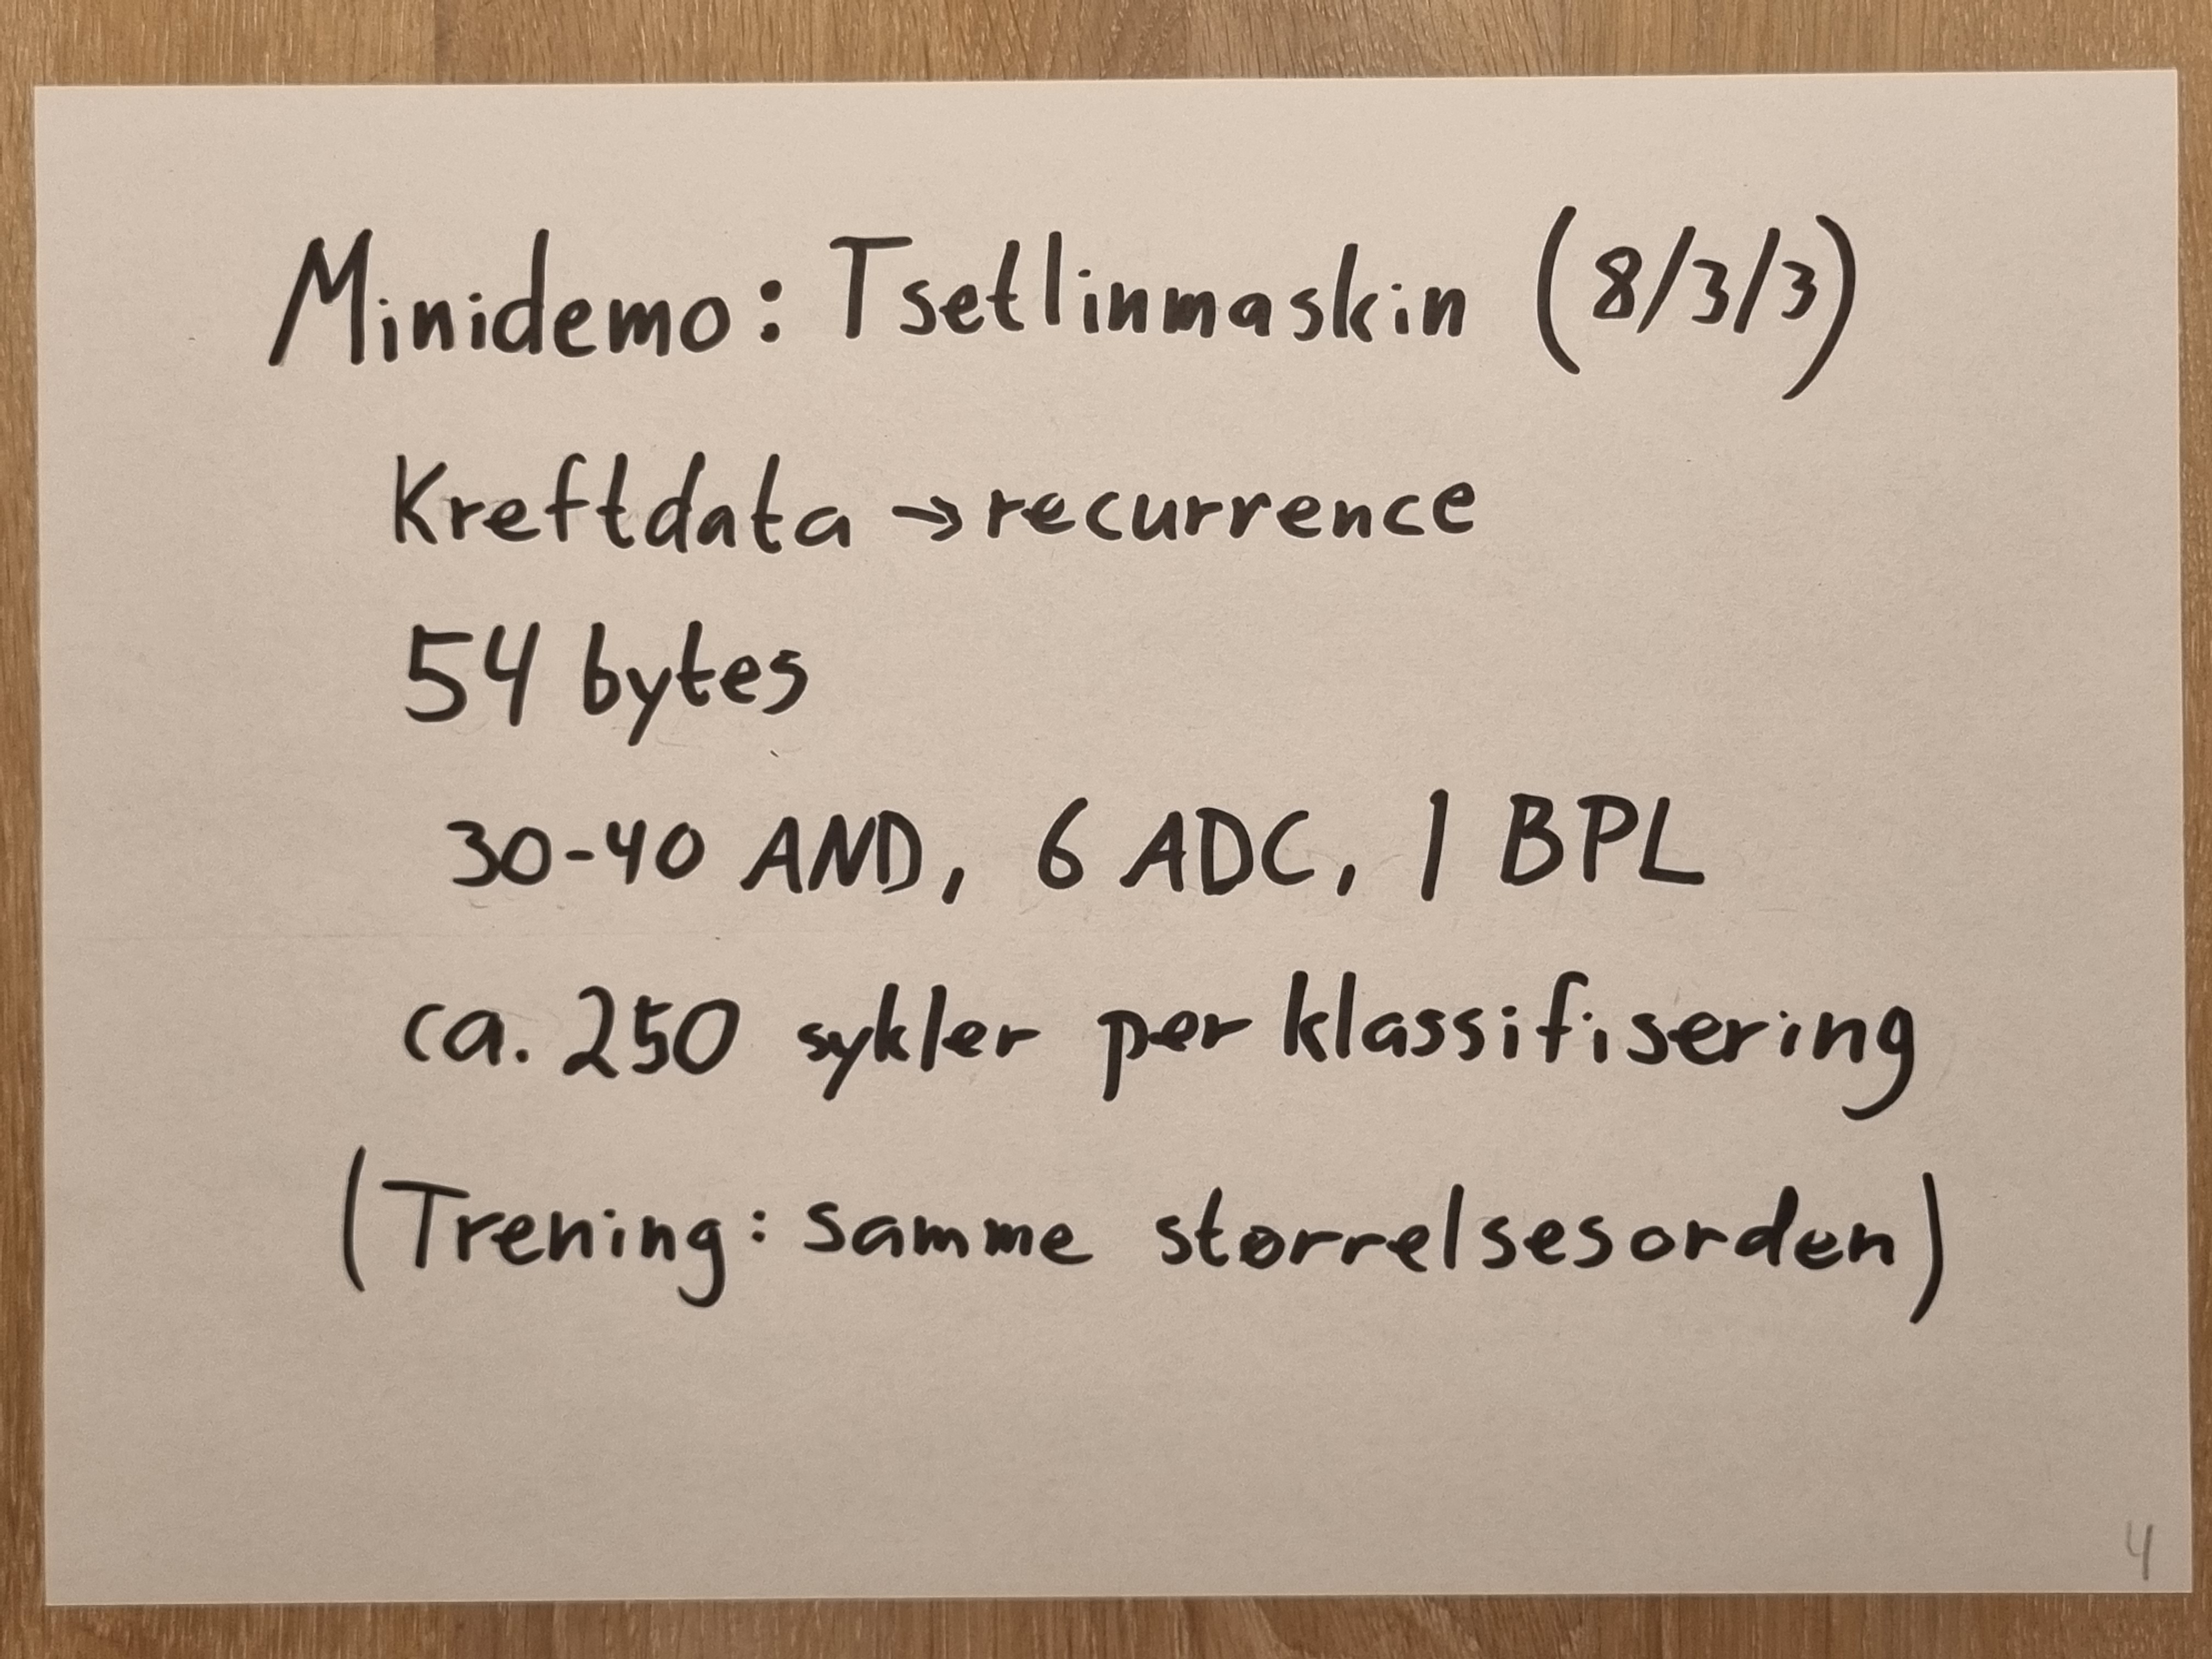 Minidemo: Tsetlinmaskin (8/3/3)
Kreftdata → recurrence
54 bytes
30-40 AND, 6 ADC, 1 BPL
ca. 250 sykler per klassifisering
(Trening: samme størrelsesorden)
4